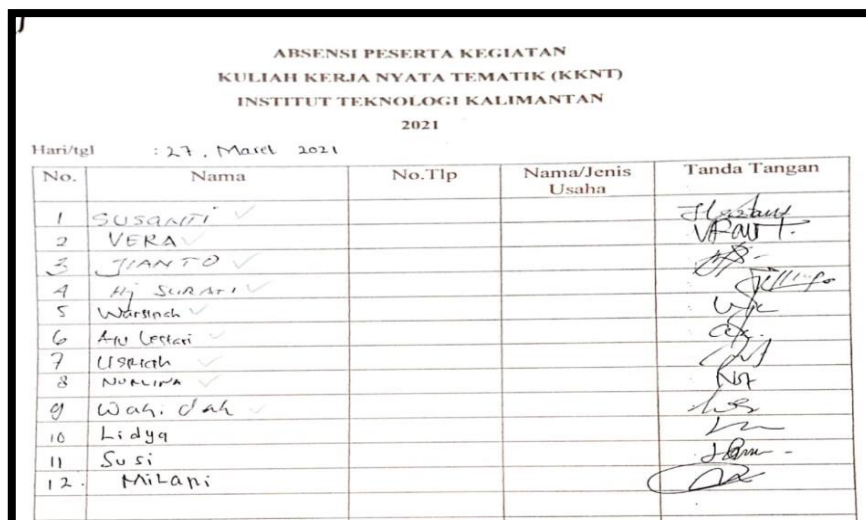 ABSENSI PESERTA KEGIATAN
KULIAH KERJA NYATA TEMATIK (KKNT)
INSTITUT TEKNOLOGI KALIMANTAN
2021
Hari/tgl : 27, Maret 2021
No. Nama No.Tlp Nama/Jenis Usaha Tanda Tangan
1 SUSANTI
2 VERA
3 JIANTO
4 Hj SURATI
5 Warsinah
6 Ayu Lestari
7
8 NURLINA
9 Wahidah
10 Lidya
11 Susi
12. Milani